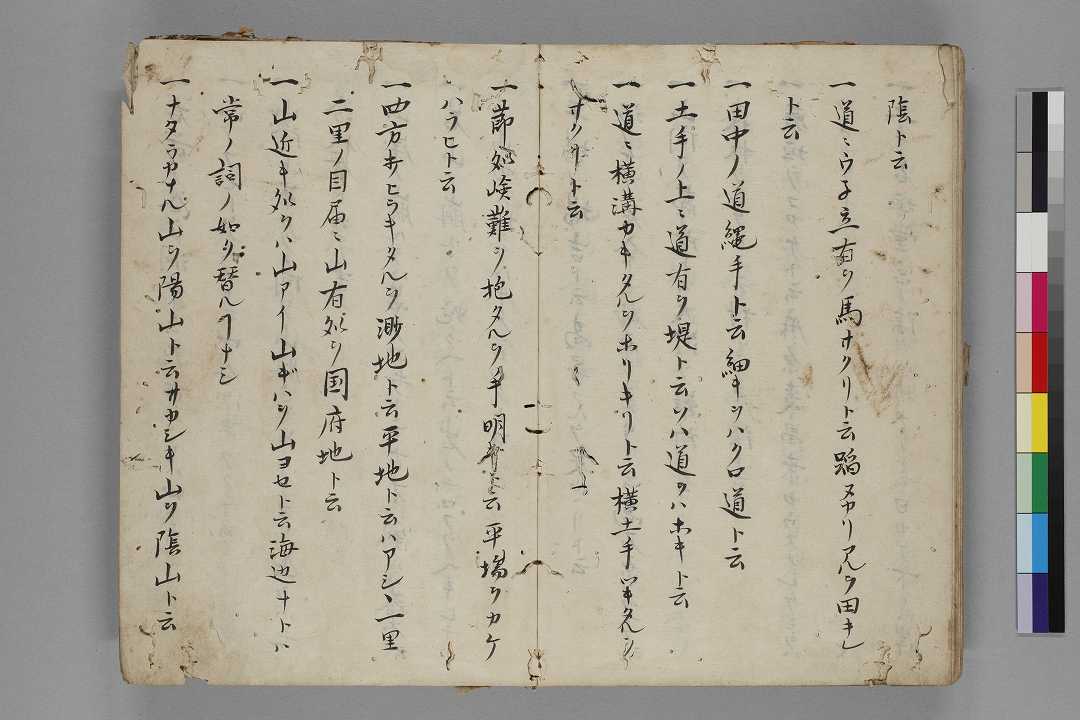 陰ト云
一道ニウ子立有ヲ馬サクリト云蹈ヌカリアルヲ田キレ
ト云
一田中ノ道縄手ト云細キヲハクロ道ト云
一土手ノ上ニ道有ヲ堤ト云ソハ道ヲハホキト云
一道ニ横溝カキタルヲホリキリト云横土手ツキタルヲ
サクリト云
一節処嶮難ヲ抱タルヲ手明ト云平場ヲカケ
ハラヒト云
一四方キヒラキタルヲ渺地ト云平地ト云ハアシヽ一里
二里ノ目届ニ山有処ヲ国府地ト云
一山近キ処ヲハ山アイ山ギハヲ山ヨセト云海辺ナトハ
常ノ詞ノ如ク替ルヿナシ
一ナタラカナル山ヲ陽山ト云サカシキ山ヲ陰山ト云